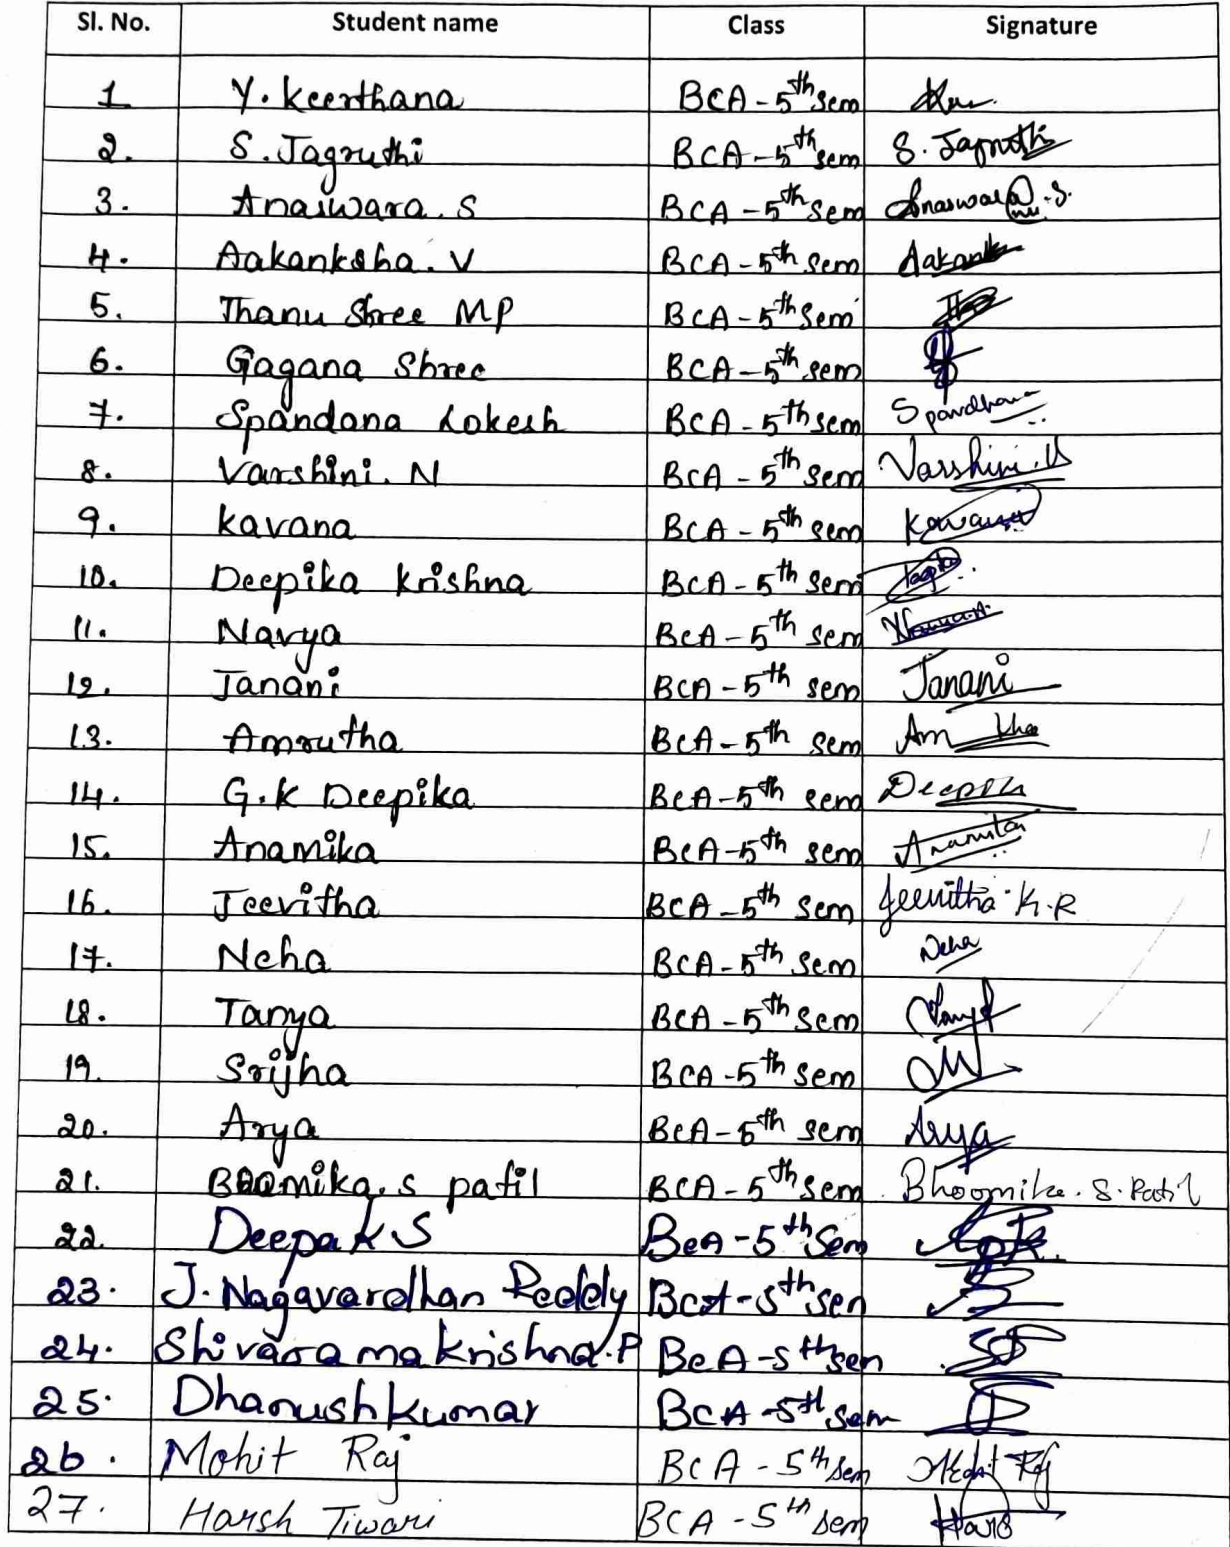 Sl. No. Student name Class Signature
1 Y. Keerthana BCA - 5th sem
2. S. Jagruthi BCA - 5th sem S. Jagruthi
3. Anaswara. S BCA - 5th sem Anaswara.S.
4. Aakanksha. V BCA - 5th sem Aakank
5. Thanu Shree MP BCA - 5th Sem
6. Gagana Shree BCA - 5th sem
7. Spandana Lokesh BCA - 5th sem Spandhana
8. Varshini. N BCA - 5th sem Varshini.N
9. Kavana BCA - 5th sem Kavana
10. Deepika Krishna BCA - 5th sem
11. Navya BCA - 5th sem
12. Janani BCA - 5th sem Janani
13. Amrutha BCA - 5th sem Am
14. G.K Deepika BCA - 5th sem
15. Anamika BCA - 5th sem Anamika
16. Jeevitha BCA - 5th sem Jeevitha.K.R
17. Neha BCA - 5th sem Neha
18. Tanya BCA - 5th sem
19. Srijha BCA - 5th sem
20. Arya BCA - 5th sem Arya
21. Boomika. S patil BCA - 5th sem Bhoomika. S. Patil
22. Deepak S BCA - 5th Sem
23. J. Nagavardhan Reddy BCA - 5th sen
24. Shivaramakrishna.P BCA - 5th sen
25. Dhanush kumar BCA - 5th sem
26. Mohit Raj BCA - 5th sem Mohit Raj
27. Harsh Tiwari BCA - 5th sem